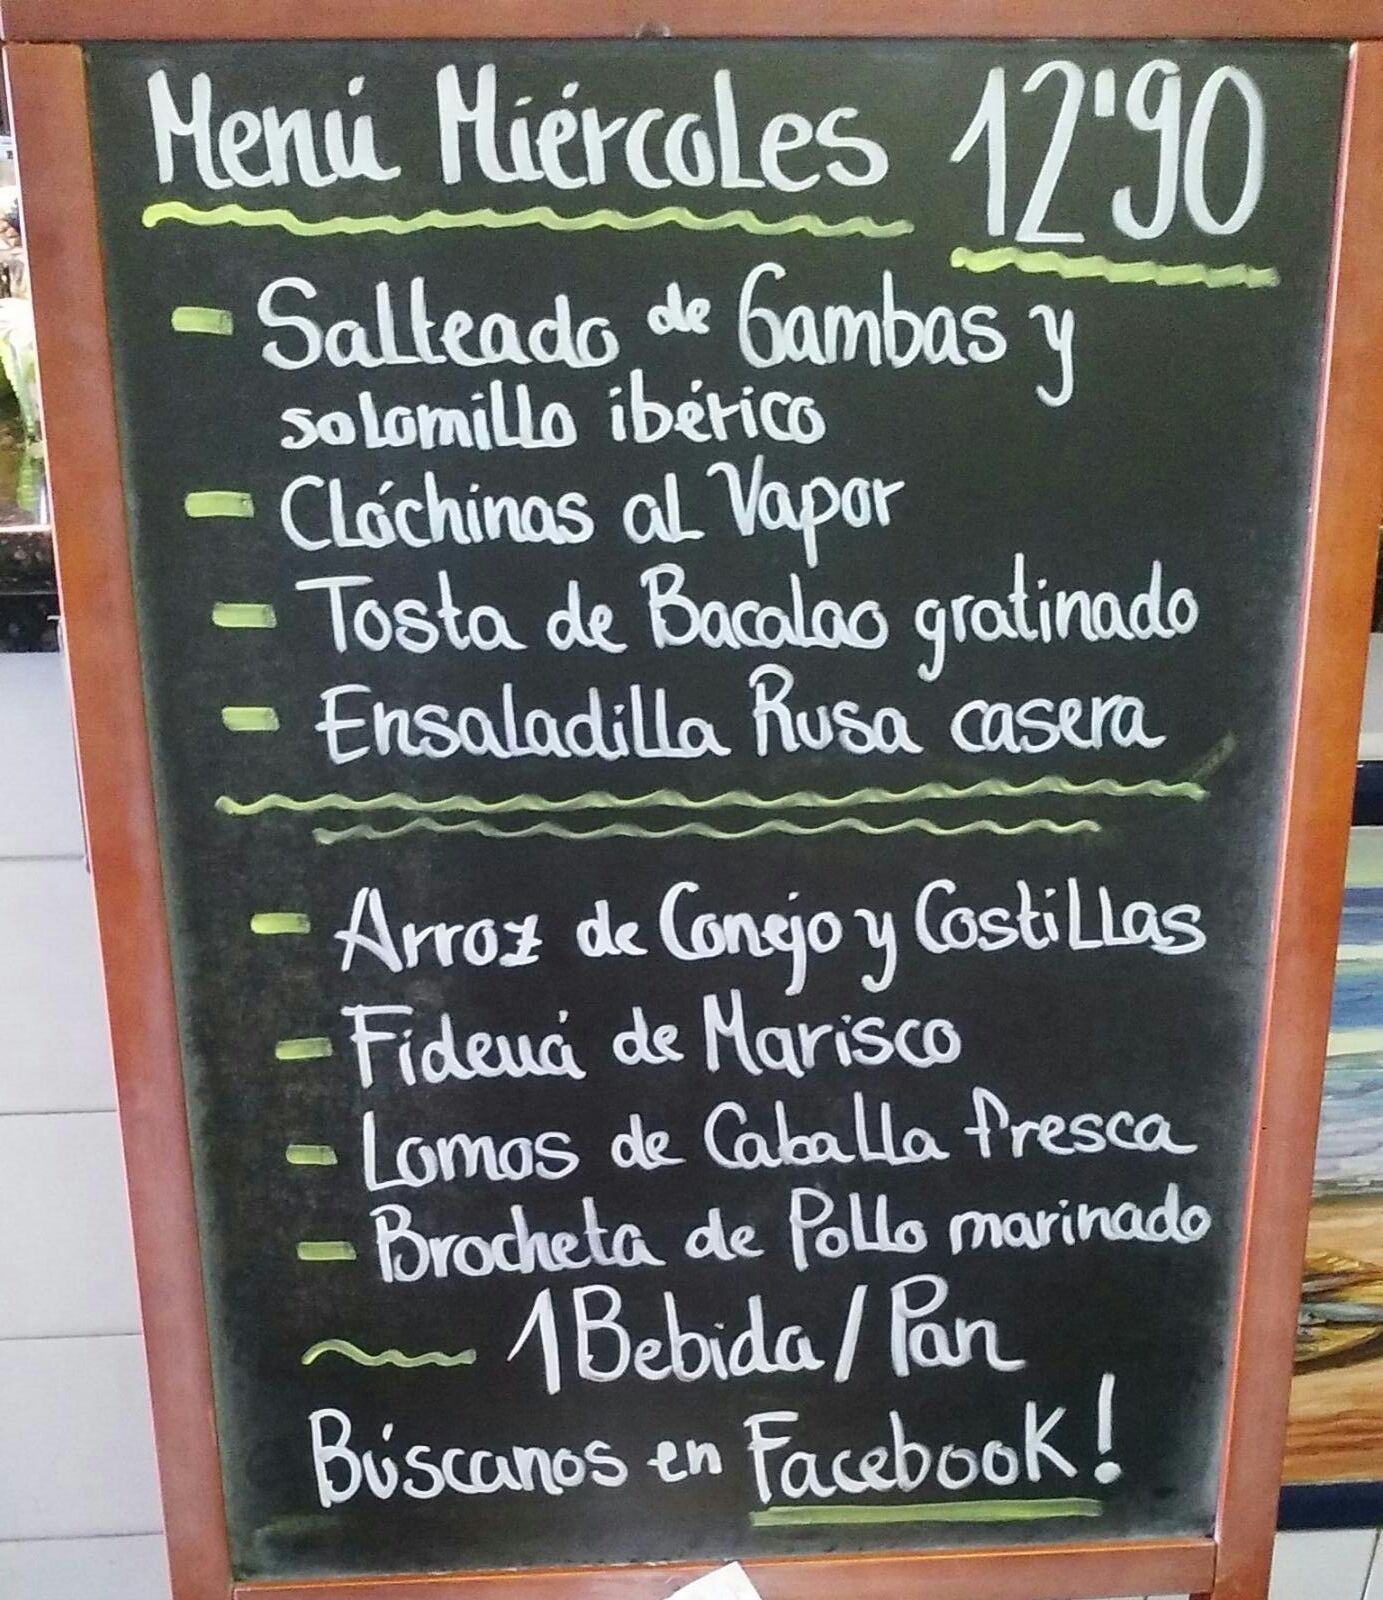 Menú Miércoles 12'90
- Salteado de Gambas y
solomillo ibérico
- Clóchinas al Vapor
- Tosta de Bacalao gratinado
- Ensaladilla Rusa casera
- Arroz de Conejo y Costillas
- Fideuá de Marisco
- Lomos de Caballa fresca
- Brocheta de Pollo marinado
1 Bebida / Pan
Búscanos en Facebook!